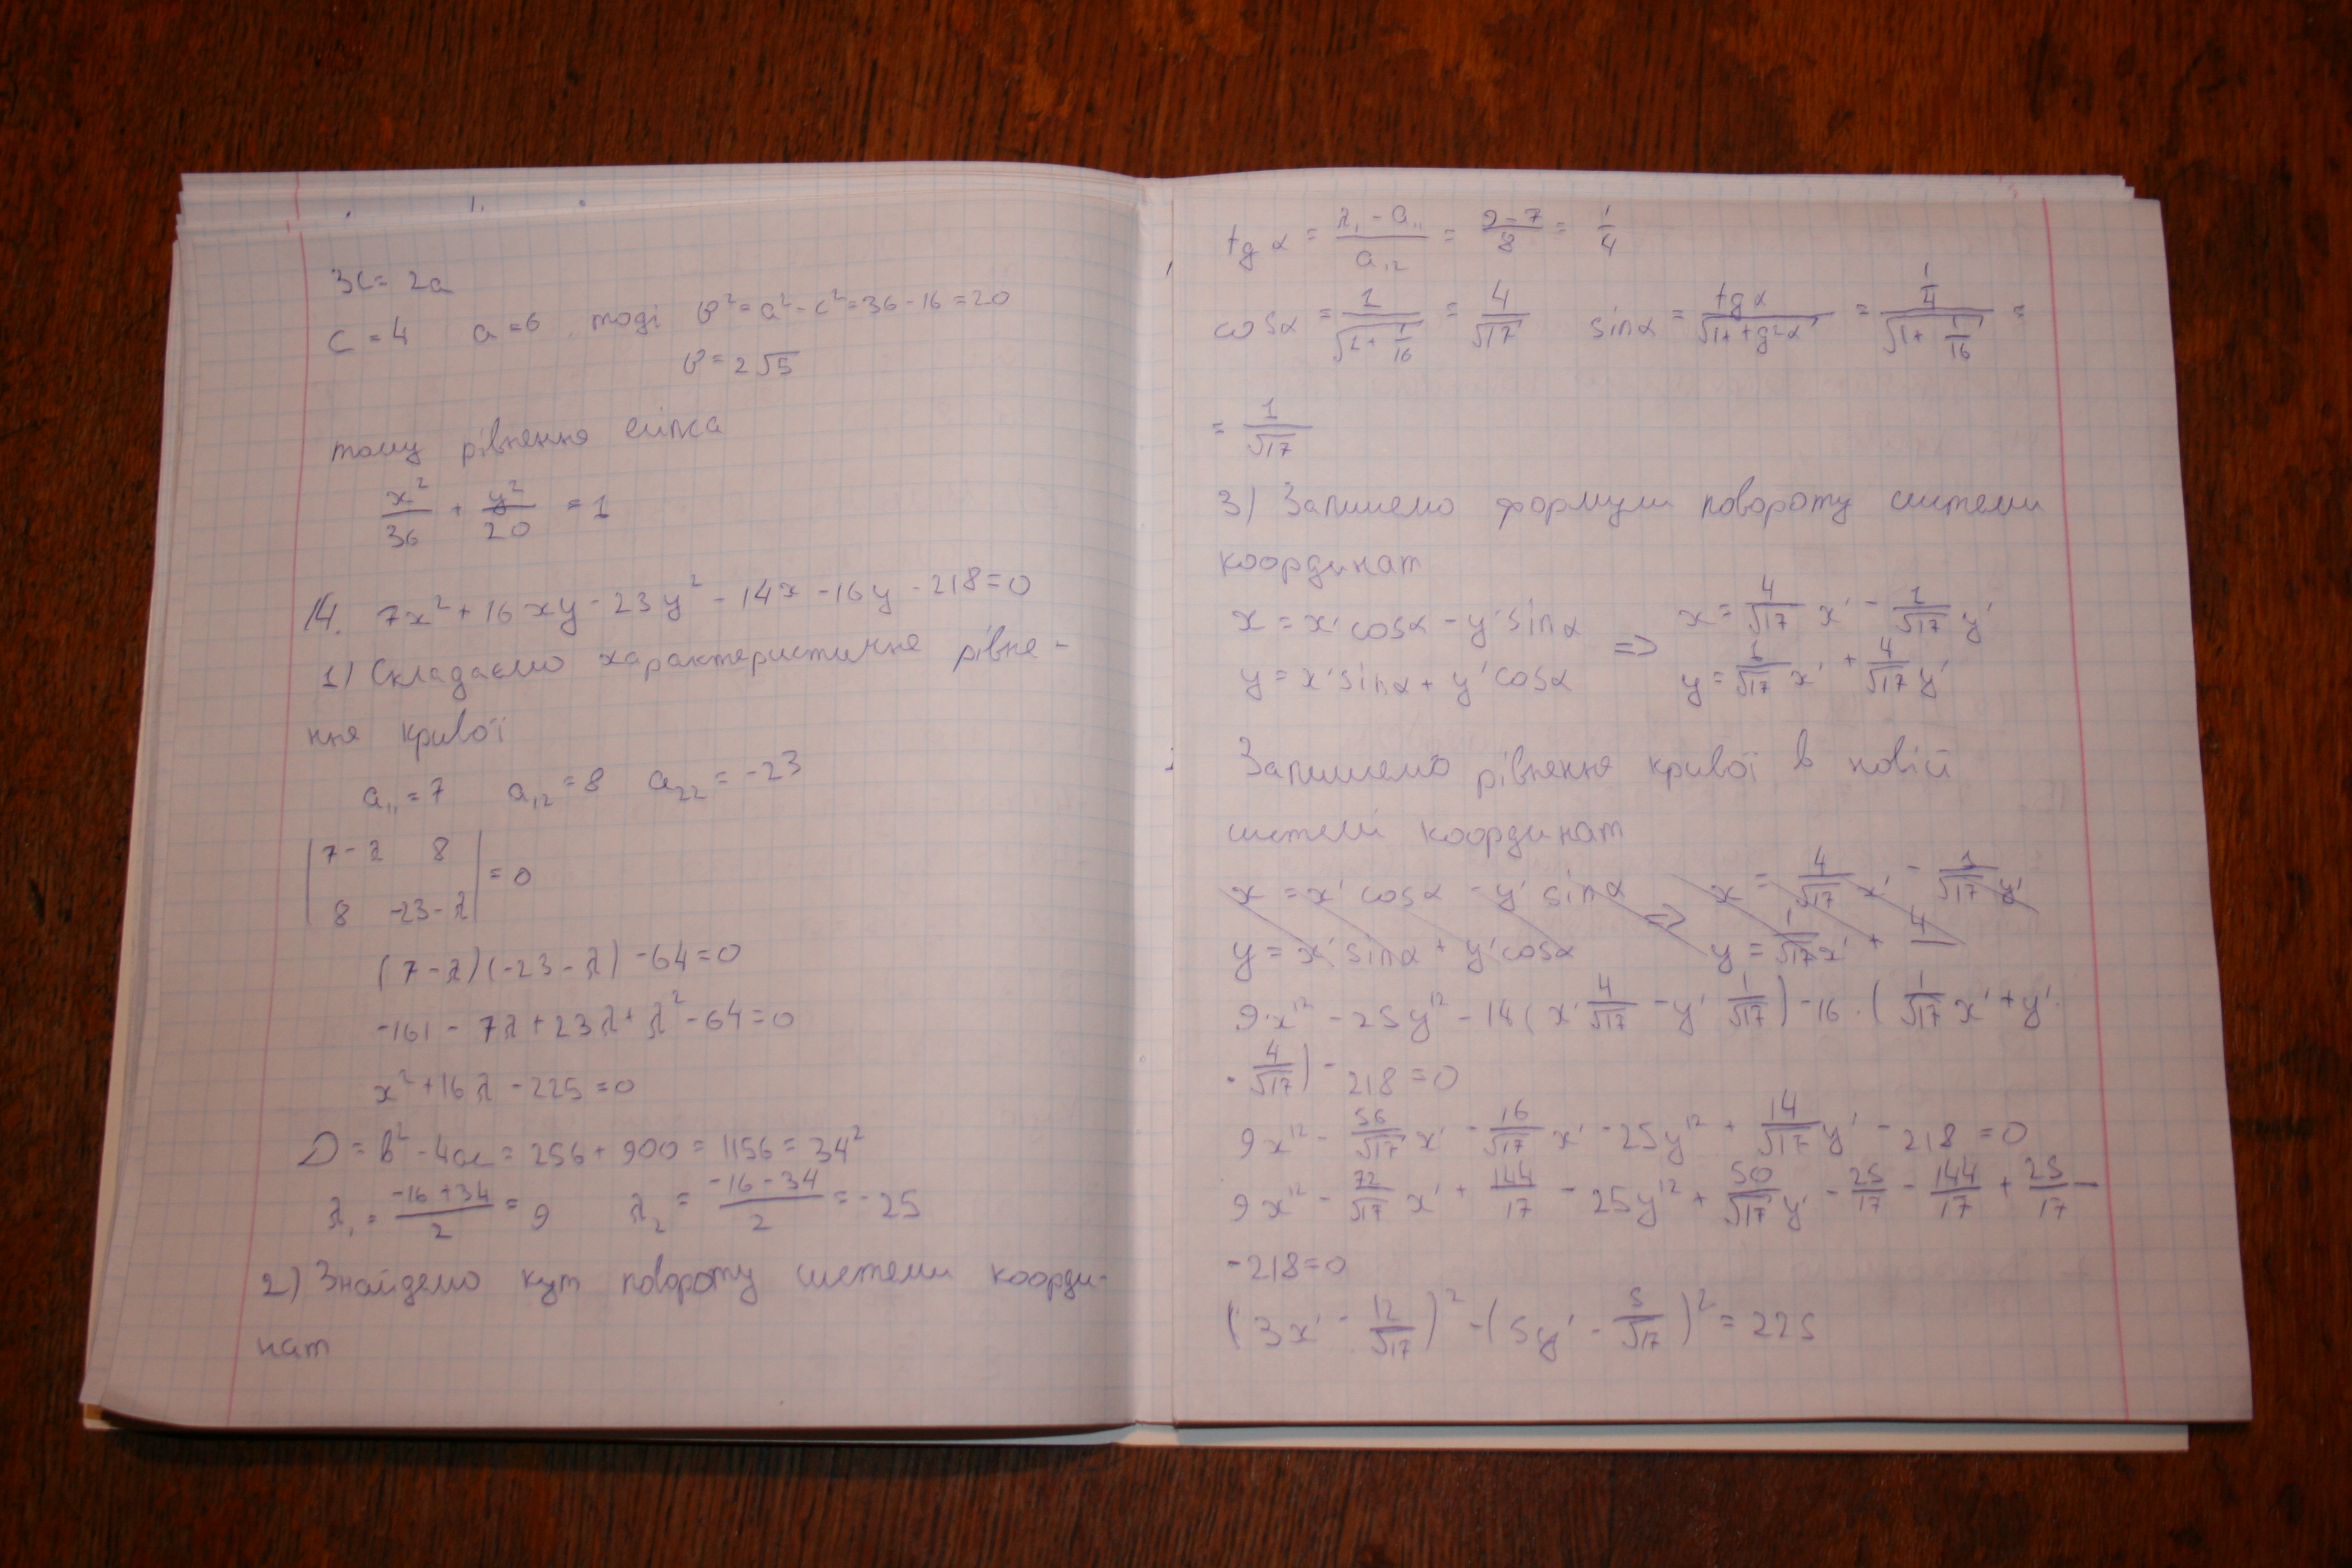 3c = 2a
c = 4 a = 6, тоді b² = a² - c² = 36 - 16 = 20
b = 2√5
тому рівняння еліпса
x²/36 + y²/20 = 1
14. 7x² + 16xy - 23y² - 14x - 16y - 218 = 0
1) Складаємо характеристичне рівне-
ння кривої
a₁₁ = 7 a₁₂ = 8 a₂₂ = -23
|7-λ 8|
|8 -23-λ| = 0
(7-λ)(-23-λ) - 64 = 0
-161 - 7λ + 23λ + λ² - 64 = 0
x² + 16λ - 225 = 0
D = b² - 4ac = 256 + 900 = 1156 = 34²
λ₁ = (-16+34)/2 = 9 λ₂ = (-16-34)/2 = -25
2) Знайдемо кут повороту системи коорди-
нат
tg α = (λ₁ - a₁₁)/a₁₂ = (9-7)/8 = 1/4
cos α = 1/√(1 + 1/16) = 4/√17 sin α = tg α/√(1+tg²α) = (1/4)/√(1 + 1/16) =
= 1/√17
3) Запишемо формули повороту системи
координат
x = x' cos α - y' sin α => x = 4/√17 x' - 1/√17 y'
y = x' sin α + y' cos α y = 1/√17 x' + 4/√17 y'
Запишемо рівняння кривої в новій
системі координат
x = x' cos α - y' sin α => x = 4/√17 x' - 1/√17 y'
y = x' sin α + y' cos α y = 1/√17 x' + 4/
9·x'² - 25y'² - 14(x' 4/√17 - y' 1/√17) - 16·(1/√17 x' + y'·
· 4/√17) - 218 = 0
9x'² - 56/√17 x' - 16/√17 x' - 25y'² + 14/√17 y' - 218 = 0
9x'² - 72/√17 x' + 144/17 - 25y'² + 50/√17 y' - 25/17 - 144/17 + 25/17 -
- 218 = 0
(3x' - 12/√17)² - (5y' - 5/√17)² = 225